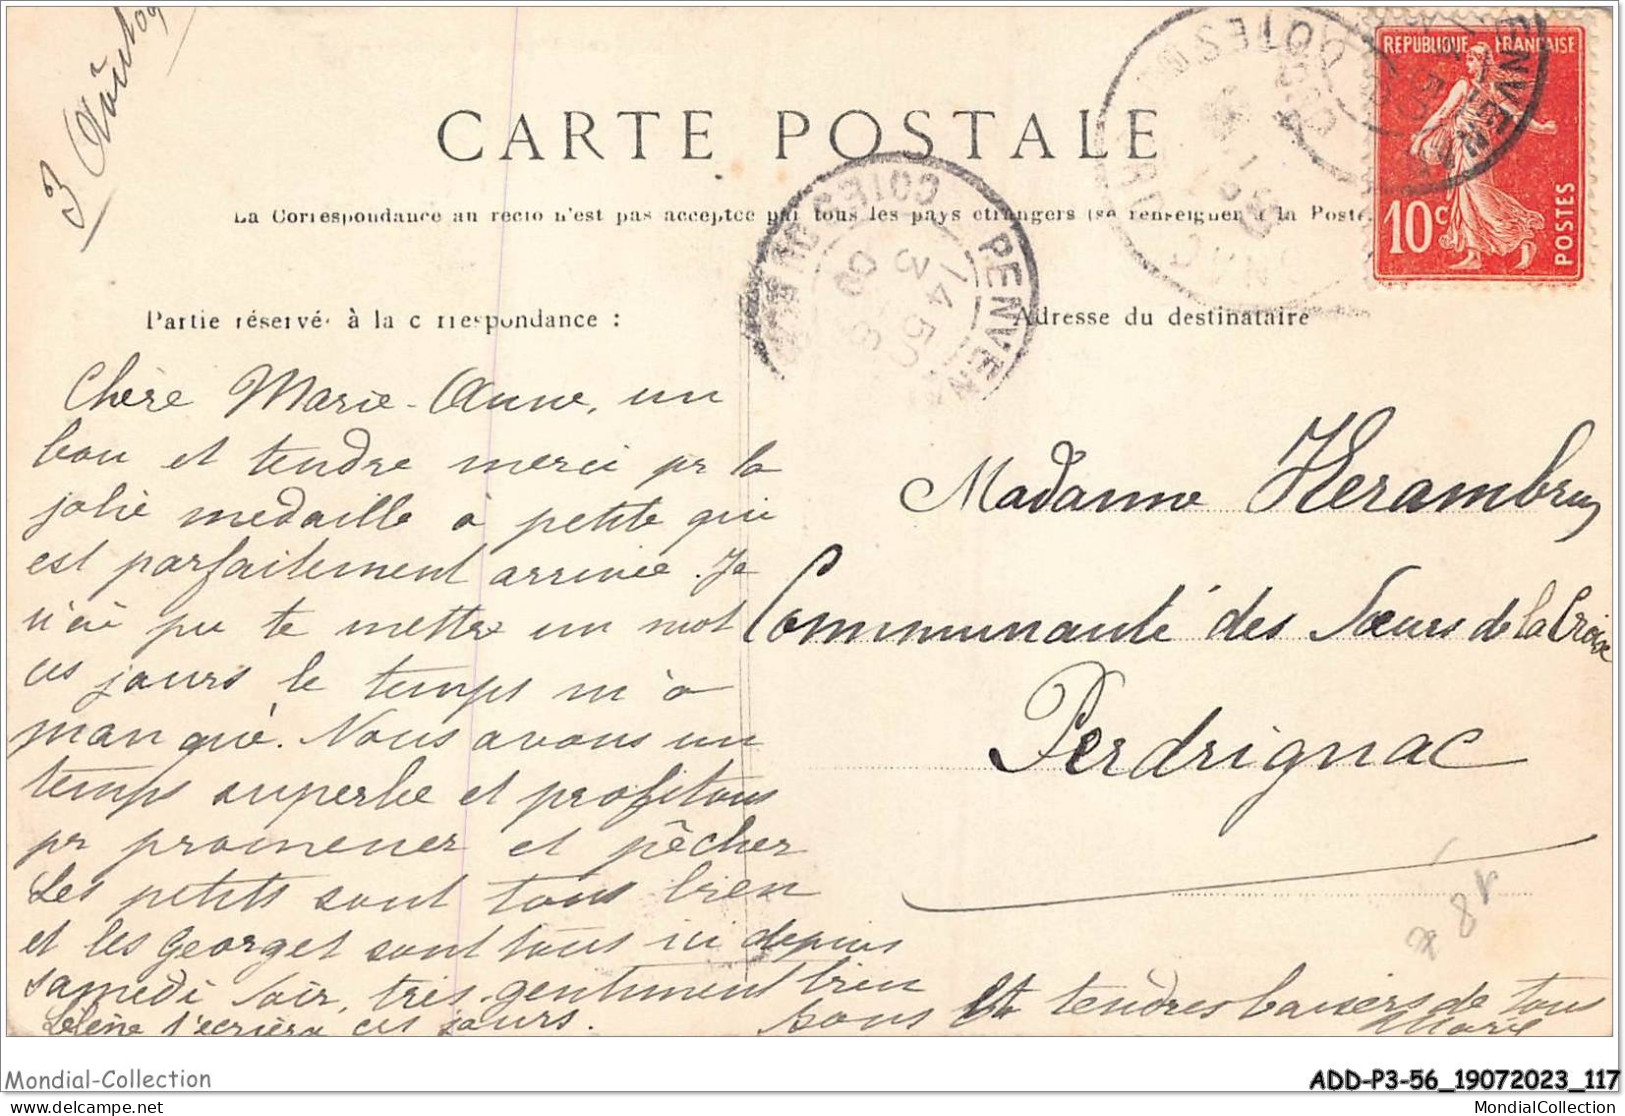 3 Août 09
CARTE POSTALE
La Correspondance au recto n'est pas acceptée par tous les pays étrangers (se renseigner à la Poste.
REPUBLIQUE FRANÇAISE
10c
POSTES
COTES DU NORD
PENVENAN
14 50
3 8
09
Partie réservée à la correspondance :
Adresse du destinataire
Chère Marie-Anne, un
bon et tendre merci pr la
jolie medaille à petite qui
est parfaitement arrivée. Je
n'ai pu te mettre un mot
ces jours le temps m'a
manqué. Nous avons un
temps superbe et profitons
pr promener et pêcher
Les petits sont tous bien
et les Georget sont tous ici depuis
samedi soir, très gentiment bien
Hélène t'écrira ces jours.
bons et tendres baisers de tous
Marie
Madame Herambrug
Communauté des Sœurs de la Croix
Perdrignac
Mondial-Collection
ADD-P3-56_19072023_117
MondialCollection